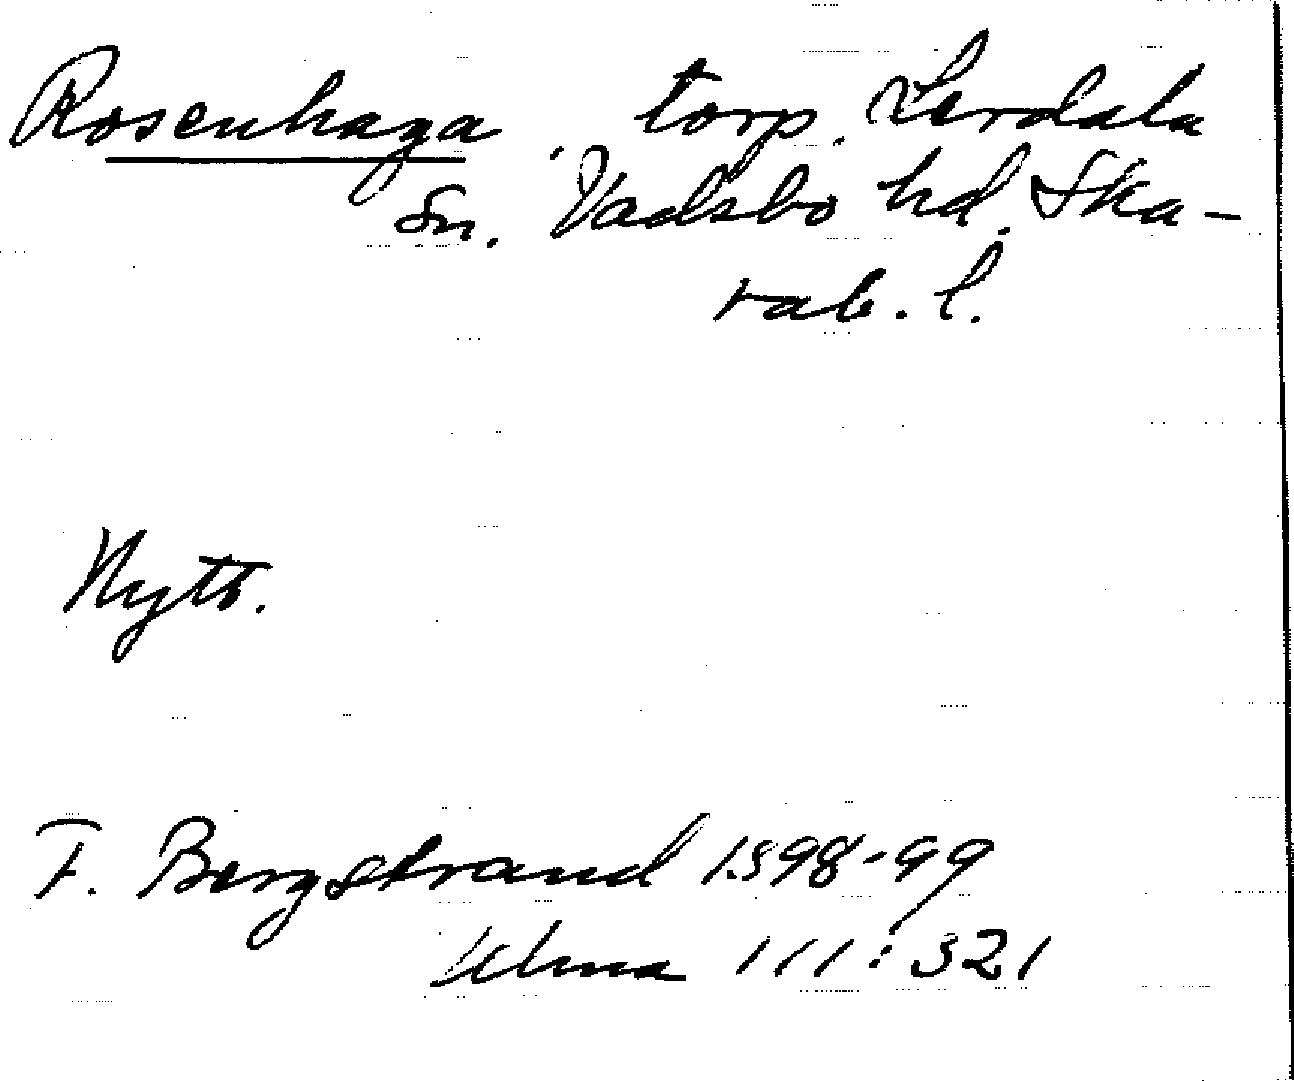 Rosenhaga, torp. Lerdala
sn. Vadsbo hd. Ska-
rab. l.
Nytt.
F. Bergstrand 1898-99
111:321